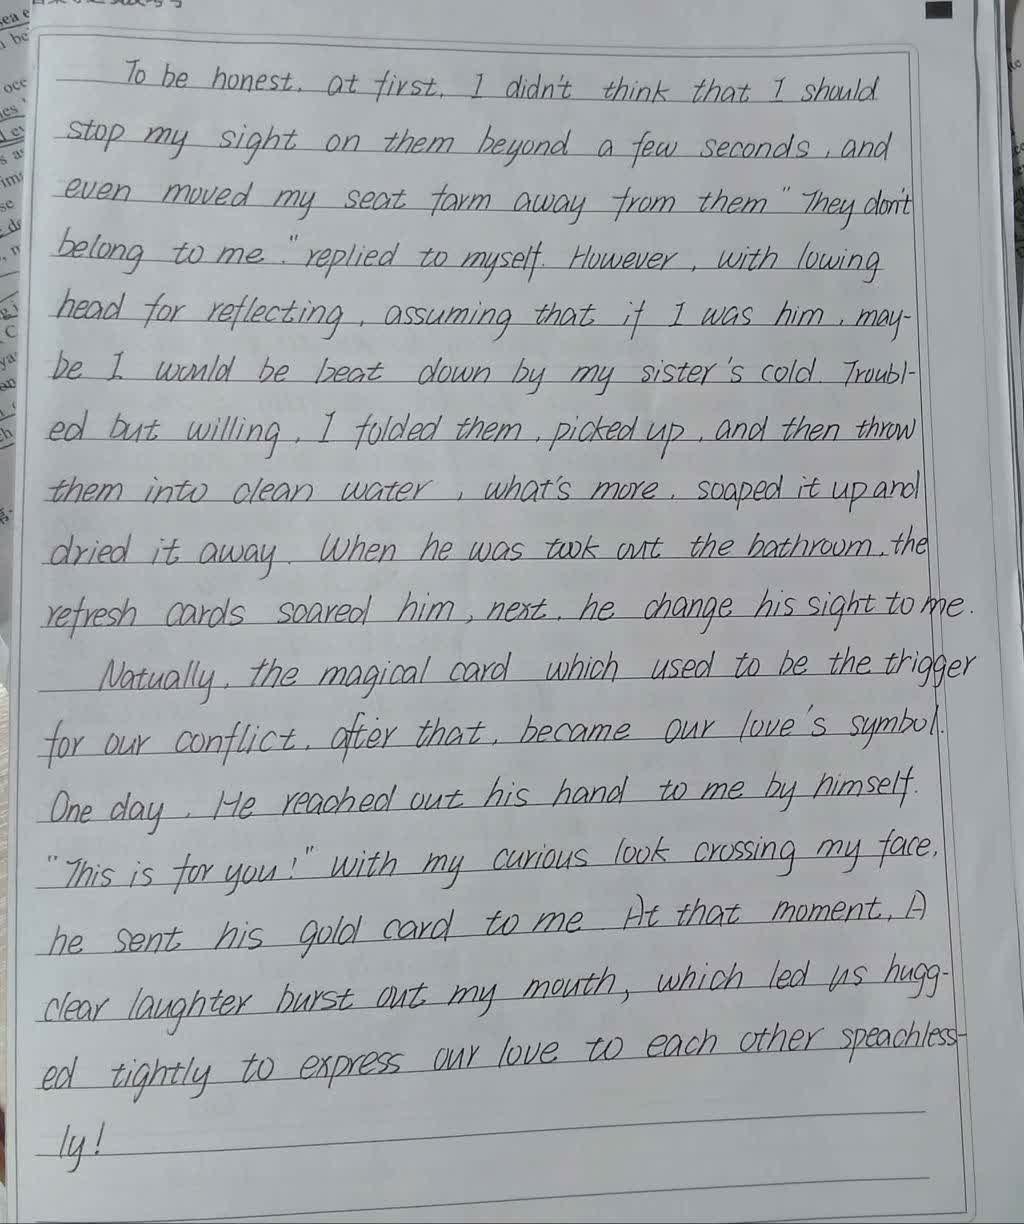 To be honest, at first, I didn't think that I should
stop my sight on them beyond a few seconds, and
even moved my seat farm away from them "They don't
belong to me." replied to myself. However, with lowing
head for reflecting, assuming that if I was him, may-
be I would be beat down by my sister's cold. Troubl-
ed but willing, I folded them, picked up, and then throw
them into clean water, what's more, soaped it up and
dried it away. When he was took out the bathroom, the
refresh cards soared him, next, he change his sight to me.
Natually, the magical card which used to be the trigger
for our conflict, after that, became our love's symbol.
One day, He reached out his hand to me by himself.
"This is for you!" with my curious look crossing my face,
he sent his gold card to me. At that moment, A
clear laughter burst out my mouth, which led us hugg-
ed tightly to express our love to each other speachless-
ly!